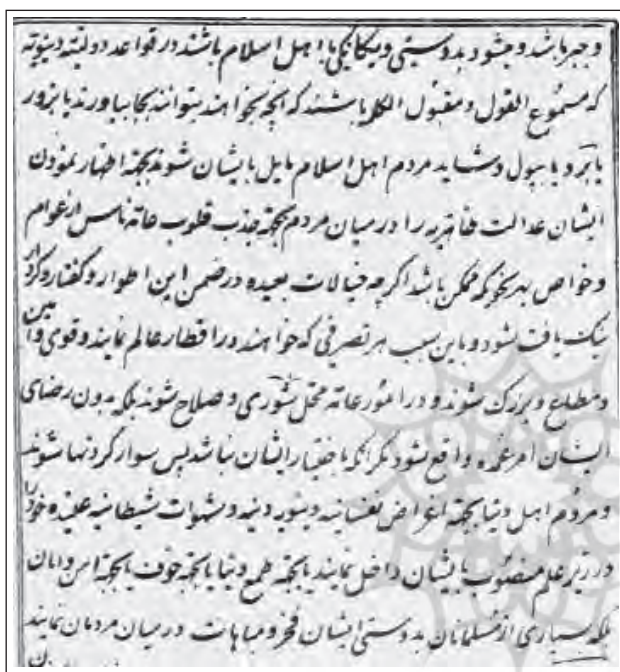 و جبر باشد و بشود بدوستی و یگانگی با اهل اسلام باشند در قواعد دولتیه دینویه
که مسموع القول و مقبول الکلمه باشند که آنچه بخواهند بتوانند بجا بیاورند یا بزور
یا بزر و یا بپول و شاید مردم اهل اسلام مایل بایشان شوند بجهة اظهار نمودن
ایشان عدالت ظاهریه را در میان مردم بجهة جذب قلوب عامه ناس از عوام
و خواص بهر نحویکه ممکن باشد اگر چه خیالات بعیده در ضمن این اطوار و گفتار و کردار
نیک یافت شود و باین سبب هر تصرفی که خواهند در اقطار عالم نمایند و قوی و امین
و مطاع و بزرک شوند و در امور عامه محل شوری و صلاح شوند بلکه بدون رضای
ایشان امر عمده واقع نشود مگر آنکه باختیار ایشان باشد پس سوار گردنها شوند
و مردم اهل دنیا بجهة اغراض نفسانیه دنیویه دنیه و شهوات شیطانیه عقیده خود را
در زیر علم منصوب بایشان داخل نمایند یا بجهة طمع دنیا یا بجهة خوف یا بجهة امن و امان
بلکه بسیاری از مسلمانان بدوستی ایشان فخر و مباهات در میان مردمان نمایند